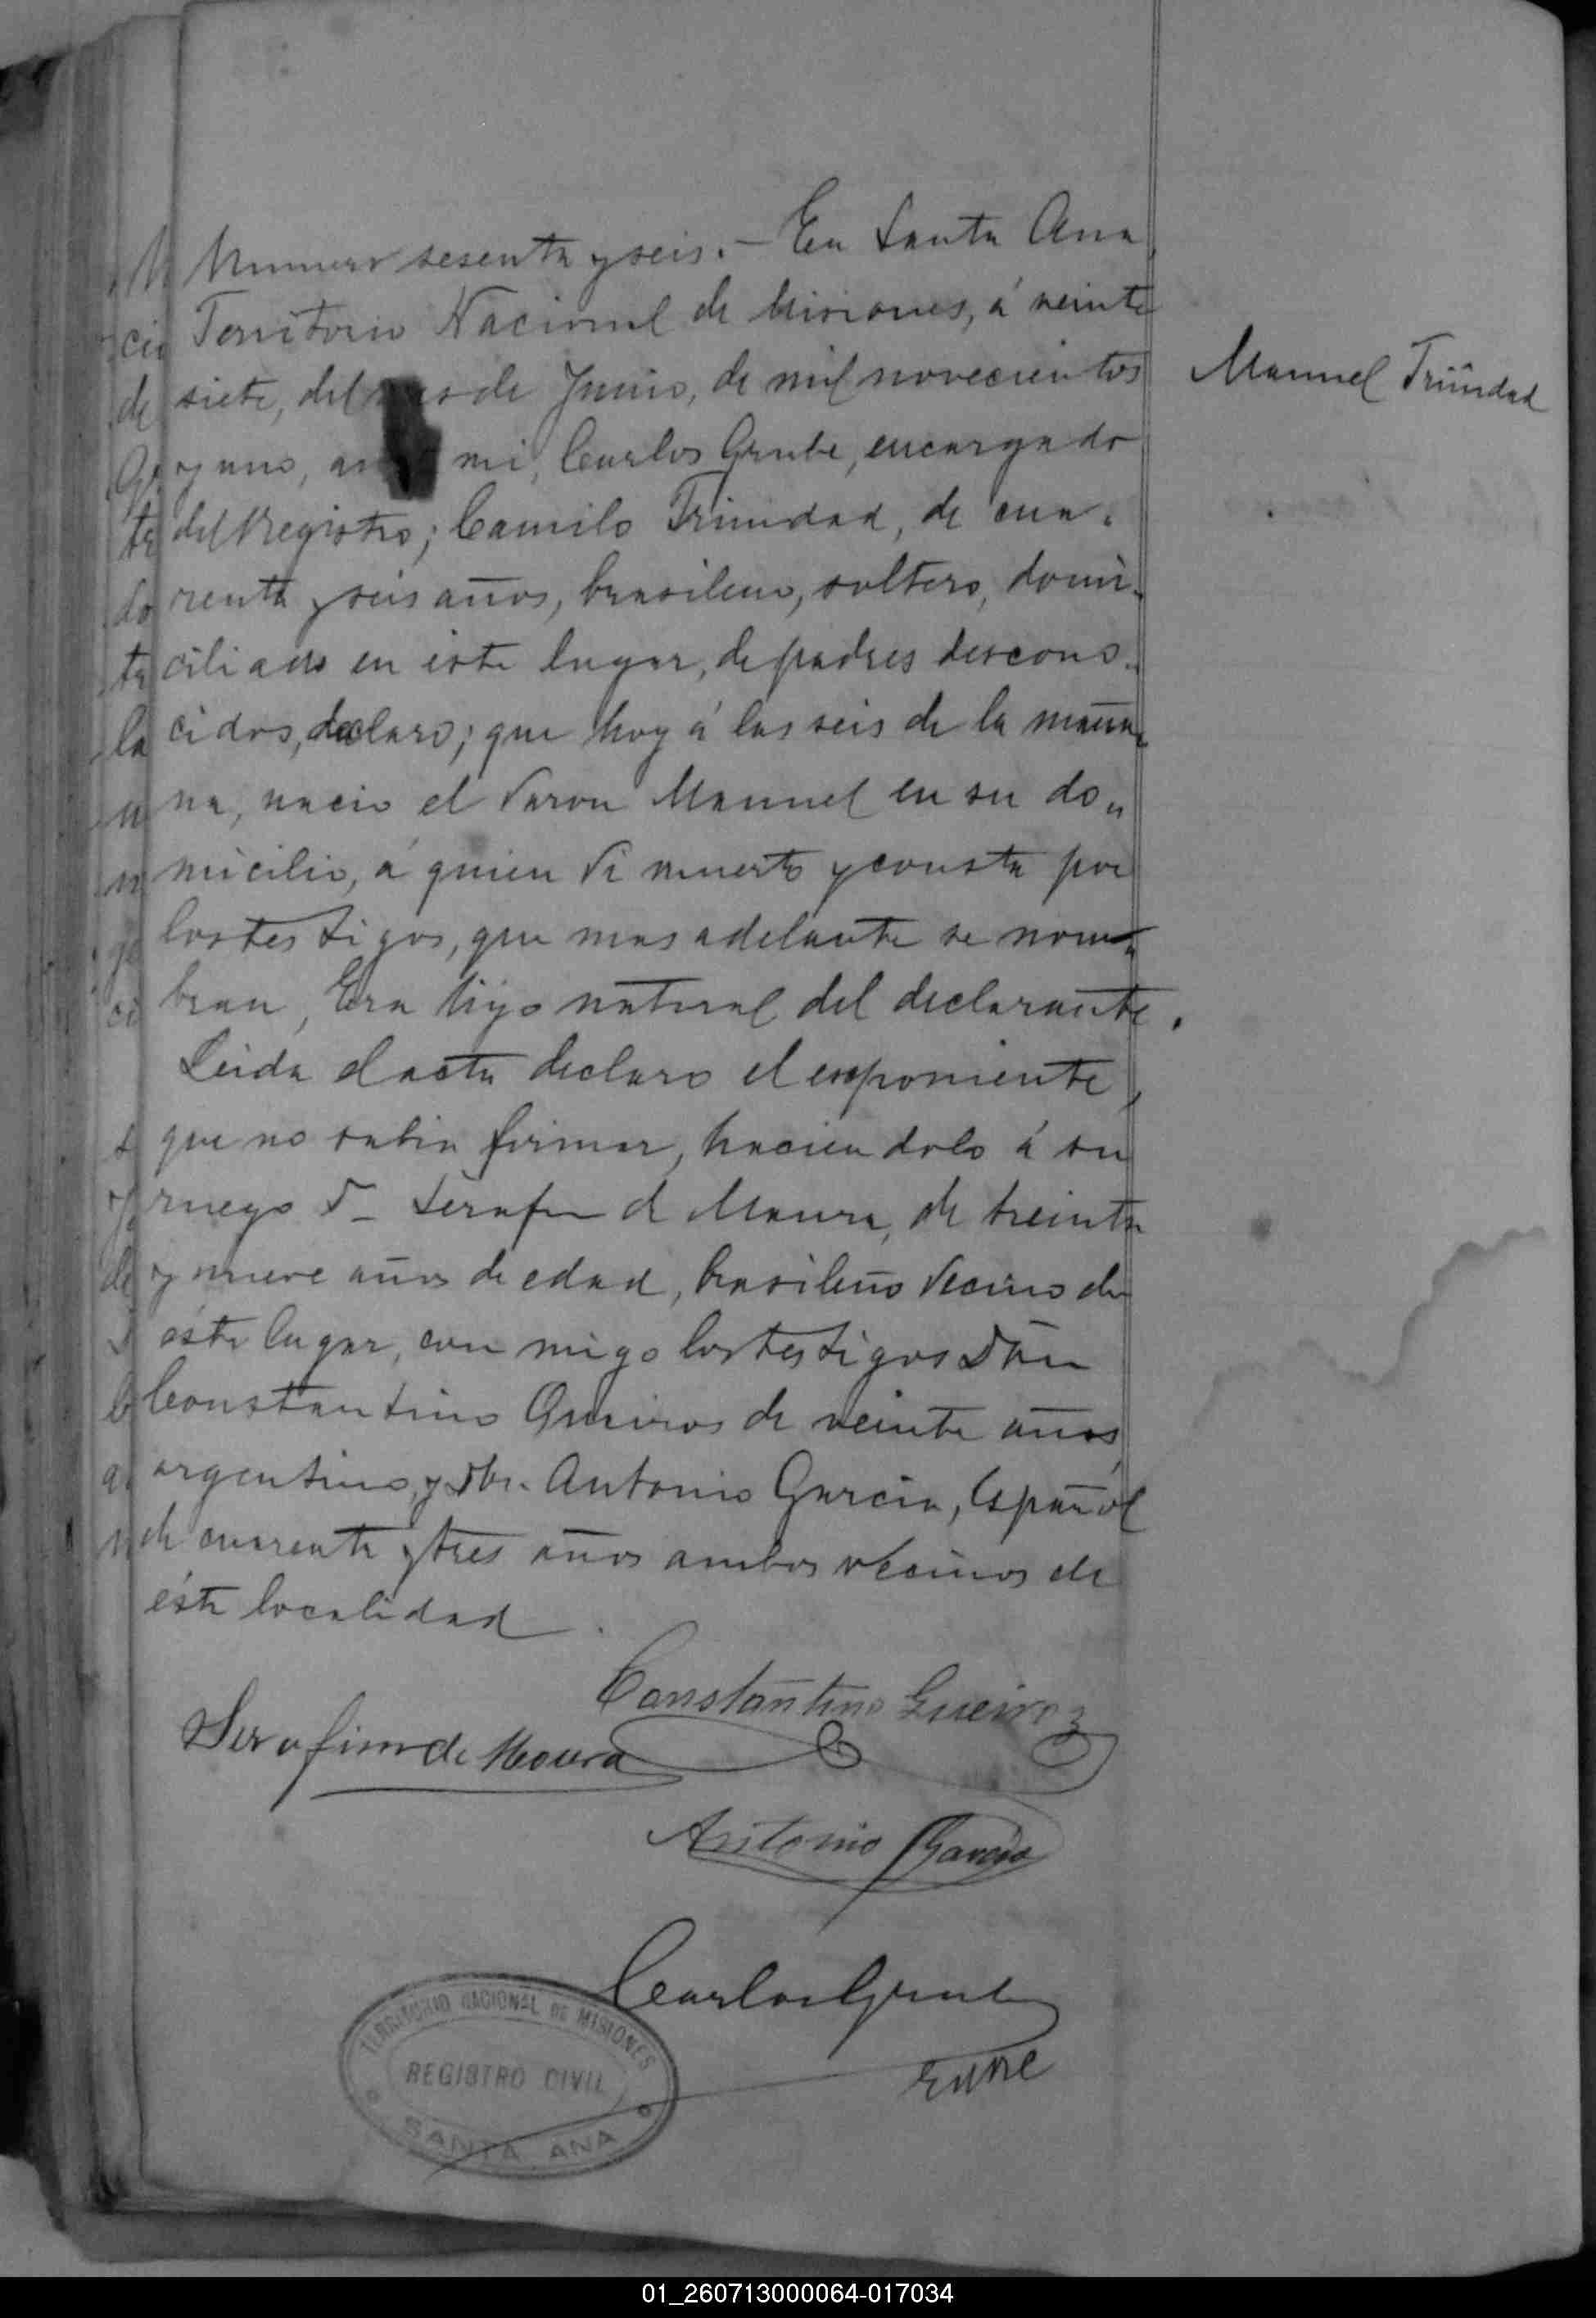 Numero sesenta y seis. — En Santa Ana,
Territorio Nacional de Misiones, á veinte
siete, del mes de Junio, de mil novecientos
y uno, ante mi, Carlos Grube, encargado
del Registro; Camilo Trinidad, de cua-
renta y seis años, brasileno, soltero, domi-
ciliado en este lugar, de padres descono-
cidos, declaro; que hoy á las seis de la maña-
na, nacio el varon Manuel en su do-
micilio, á quien vi muerto y consta por
los testigos, que mas adelante se nom-
bran, Era hijo natural del declarante.
Leida el acta declaro el exponiente,
que no sabia firmar, haciendolo á su
ruego Dn Serafin d Moura, de treinta
y nueve años de edad, brasileño vecino de
éste lugar, con migo los testigos Don
Constantino Queiros de veinte años,
argentino, y Don Antonio Garcia, Español
de cuarenta y tres años ambos vecinos de
ésta localidad.
Manuel Trinidad
Constantino Queiroz
Serafim de Moura
Antonio Garcia
Carlos Grube
TERRITORIO NACIONAL DE MISIONES
REGISTRO CIVIL
SANTA ANA
01_260713000064-017034